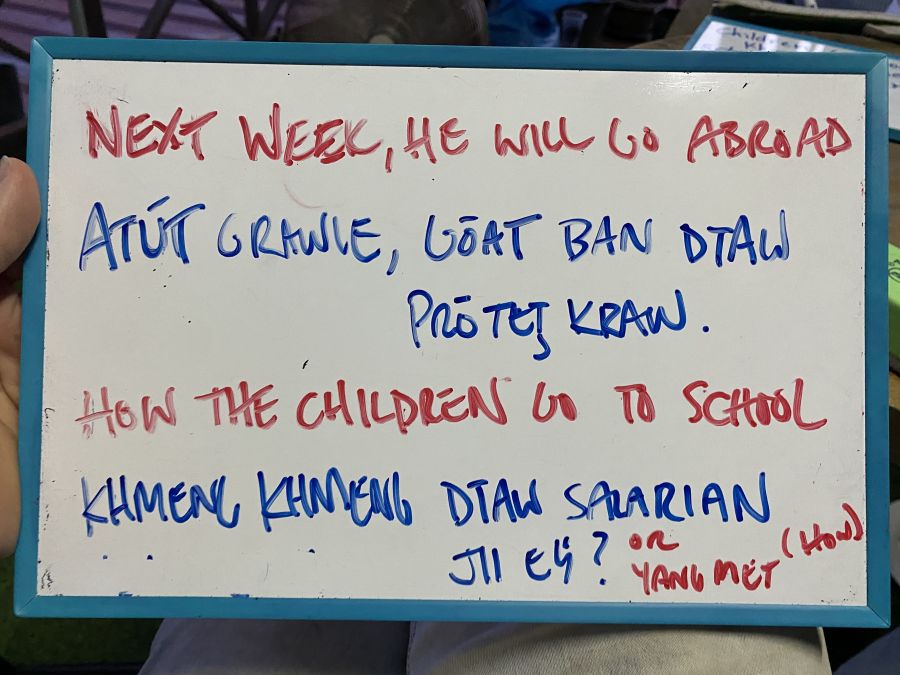 NEXT WEEK, HE WILL GO ABROAD
ATÚT GRAWIE, GŌAT BAN DTAW
PRŌTEŢ KRAW.
HOW THE CHILDREN GO TO SCHOOL
KHMENG KHMENG DTAW SALARIAN
JII EŸ? OR YANG MET (HOW)